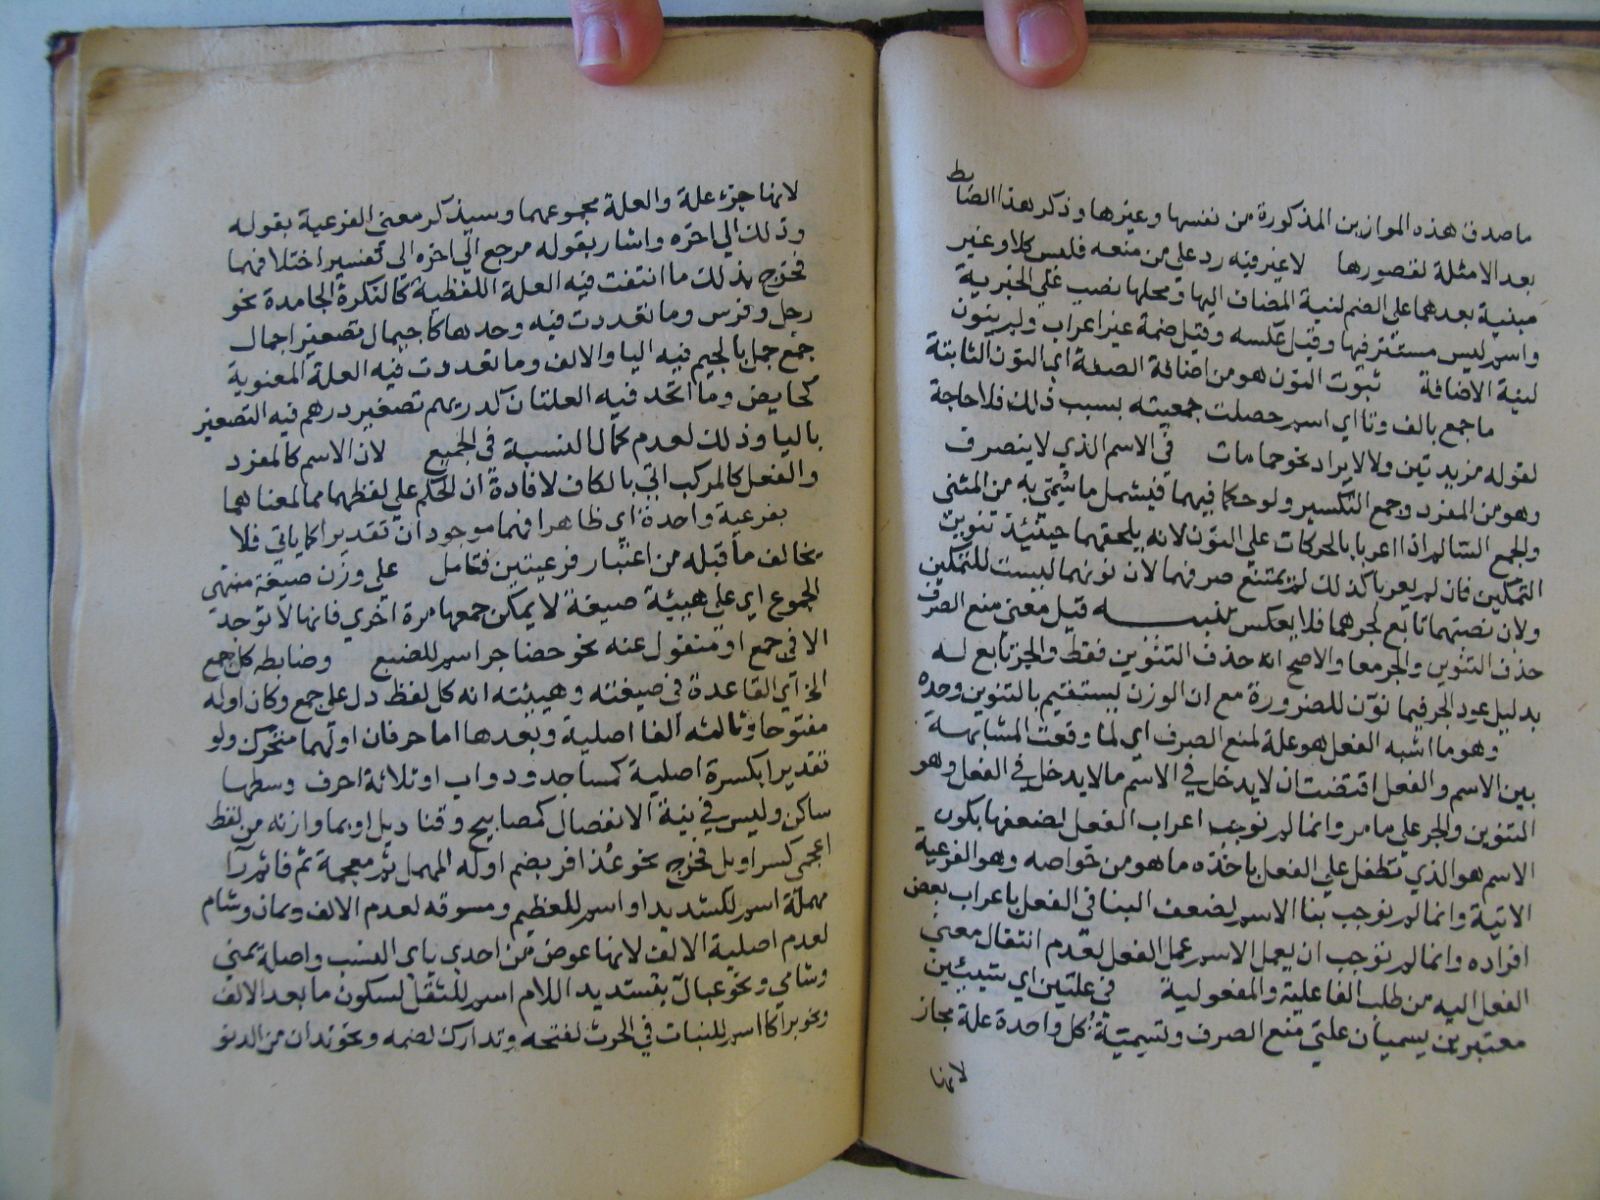 ما صدق هذه الموازين المذكورة من نفسها وغيرها وذكر هذا الضابط
بعد الامثلة لقصورها لا غير فيه رد على من منعه فليس كلا وغير
مبنية بعدهما على الضم لنية المضاف اليها ومحلها نصب على الخبرية
واسم ليس مستتر فيها وقيل عكسه وقيل ضمة غير اعراب ولم ينون
لنية الاضافة ثبوت النون هو من اضافة الصفة اي النون الثابتة
ما جمع بالف وتا اي اسم حصلت جمعيته بسبب ذلك فلا حاجة
لقوله مزيدتين ولا لايراد نحو حمامات في الاسم الذي لا ينصرف
وهو من المفرد وجمع التكسير ولو حكما فيهما فيشمل ما سمى به من المثنى
والجمع السالم اذا اعربا بالحركات على النون لانه يلحقهما حينئذ تنوين
التمكين فان لم يعربا كذلك لم يمتنع صرفهما لان نونهما ليست للتمكين
ولان نصبهما تابع لجرهما فلا يعكس تنبيه قيل معنى منع الصرف
حذف التنوين والجر معا والاصح انه حذف التنوين فقط والجر تابع له
بدليل عود الجر فيما نون للضرورة مع ان الوزن يستقيم بالتنوين وحده
وهو ما اشبه الفعل هو علة لمنع الصرف اي لما وقعت المشابهة
بين الاسم والفعل اقتضت ان لا يدخل في الاسم ما لا يدخل في الفعل وهو
التنوين والجر على ما مر وانما لم توجب اعراب الفعل لضعفها بكون
الاسم هو الذي تطفل على الفعل باخذه ما هو من خواصه وهو الفرعية
الاتية وانما لم توجب بنا الاسم لضعف البنا في الفعل باعراب بعض
افراده وانما لم توجب ان يعمل الاسم عمل الفعل لعدم انتقال معنى
الفعل اليه من طلب الفاعلية والمفعولية في علتين اي شيئين
معتبرين يسميان علتي منع الصرف وتسمية كل واحدة علة مجاز
لانها
لانها جزء علة والعلة مجموعهما وسيذكر معنى الفرعية بقوله
وذلك الى اخره واشار بقوله مرجع الى اخره الى تفسير اختلافهما
فخرج بذلك ما انتفت فيه العلة اللفظية كالنكرة الجامدة نحو
رجل وفرس وما تعددت فيه وحدها كاجيمال تصغير اجمال
جمع جمل بالجيم فيه اليا والالف وما تعددت فيه العلة المعنوية
كحايض وما اتحد فيه العلتان كدريهم تصغير درهم فيه التصغير
باليا وذلك لعدم كمال النسبة في الجميع لان الاسم كالمفرد
والفعل كالمركب اتى بالكاف لافادة ان الحكم على لفظهما مما لمعناهما
بفرعية واحدة اي ظاهرا فيما موجود ان تقديرا كما ياتي فلا
يخالف ما قبله من اعتبار فرعيتين فتامل على وزن صيغة منتهى
الجموع اي على هيئة صيغة لا يمكن جمعها مرة اخرى فانها لا توجد
الا في جمع او منقول عنه نحو حضاجر اسم للضبع وضابطه كل جمع
الخ اي القاعدة في صيغته وهيئته انه كل لفظ دل على جمع وكان اوله
مفتوحا وثالثه الفا اصلية وبعدها اما حرفان اولهما متحرك ولو
تقديرا بكسرة اصلية كمساجد ودواب او ثلاثة احرف وسطها
ساكن وليس في نية الانفصال كمصابيح وقناديل او بما وازنه من لفظ
اعجمي كسراويل فخرج نحو عذافر بضم اوله المهمل ثم معجمة ثم فا ثم را
مهملة اسم للشديد او اسم للعظيم ومسوقه لعدم الالف ويمان وشام
لعدم اصلية الالف لانها عوض من احدى ياى النسب واصله يمنى
وشامي ونحو عبال بتشديد اللام اسم للثقل لسكون ما بعد الالف
ونحو براكا اسم للنبات في الحرث لفتحه وتدارك لضمه ونحو تدان من الدنو